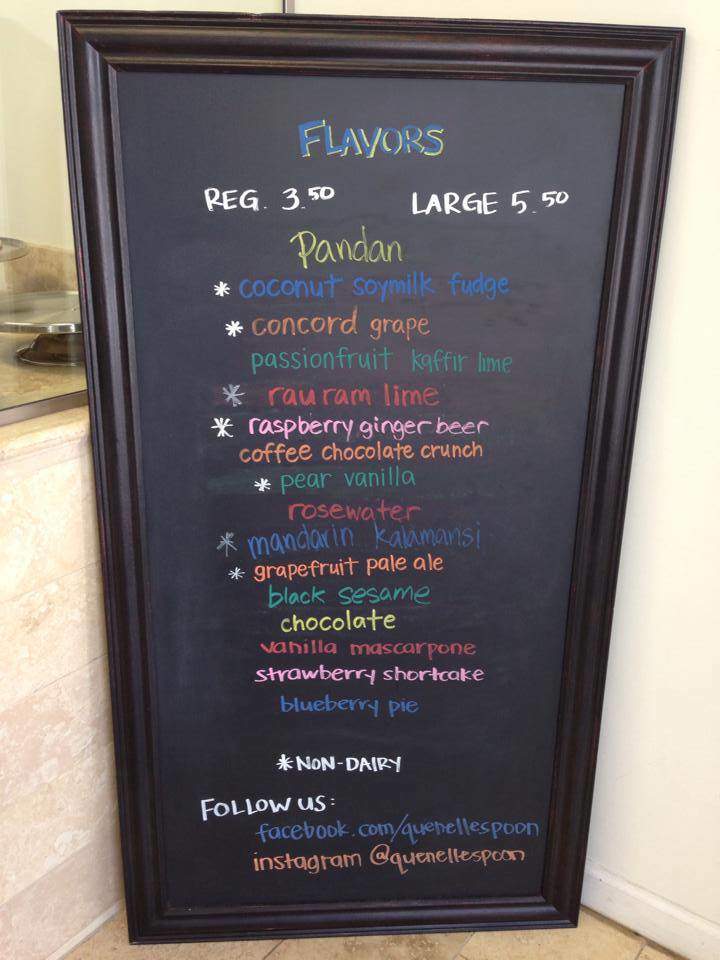 FLAVORS
REG. 3.50 LARGE 5.50
Pandan
* coconut soymilk fudge
* concord grape
passionfruit kaffir lime
* rau ram lime
* raspberry ginger beer
coffee chocolate crunch
* pear vanilla
rosewater
* mandarin kalamansi
* grapefruit pale ale
black sesame
chocolate
vanilla mascarpone
strawberry shortcake
blueberry pie
*NON-DAIRY
FOLLOW US:
facebook.com/quenellespoon
instagram @quenellespoon